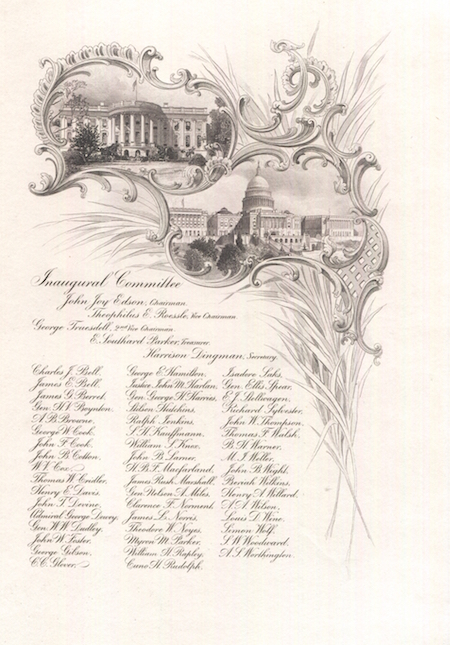 Inaugural Committee
John Joy Edson, Chairman.
Theophilus E. Roessle, Vice Chairman
George Truesdell, 2nd Vice Chairman.
E. Southard Parker, Treasurer.
Harrison Dingman, Secretary.
Charles J. Bell.
James E. Bell.
James G. Berret.
Gen. H.V. Boynton.
A.B. Browne.
George W. Cook.
John F. Cook.
John B. Cotton.
W.V. Cox.
Thomas W. Cridler.
Henry E. Davis.
John T. Devine.
Admiral George Dewey.
Gen. W.W. Dudley.
John W. Foster.
George Gibson.
C.C. Glover.
George E. Hamilton.
Justice John M. Harlan.
Gen. George H. Harries.
Stilson Hutchins.
Ralph Jenkins.
S.H. Kauffmann.
William S. Knox.
John B. Larner.
H.B.F. Macfarland.
James Rush Marshall.
Gen. Nelson A. Miles.
Clarence F. Norment.
James L. Norris.
Theodore W. Noyes.
Myron M. Parker.
William M. Rapley.
Cuno H. Rudolph.
Isadore Saks.
Gen. Ellis Spear.
E.J. Stellwagen.
Richard Sylvester.
John W. Thompson.
Thomas F. Walsh.
B.H. Warner.
M.I. Weller.
John B. Wight.
Beriah Wilkins.
Henry A. Willard.
A.A. Wilson.
Louis D. Wine.
Simon Wolf.
S.W. Woodward.
A.S. Worthington.